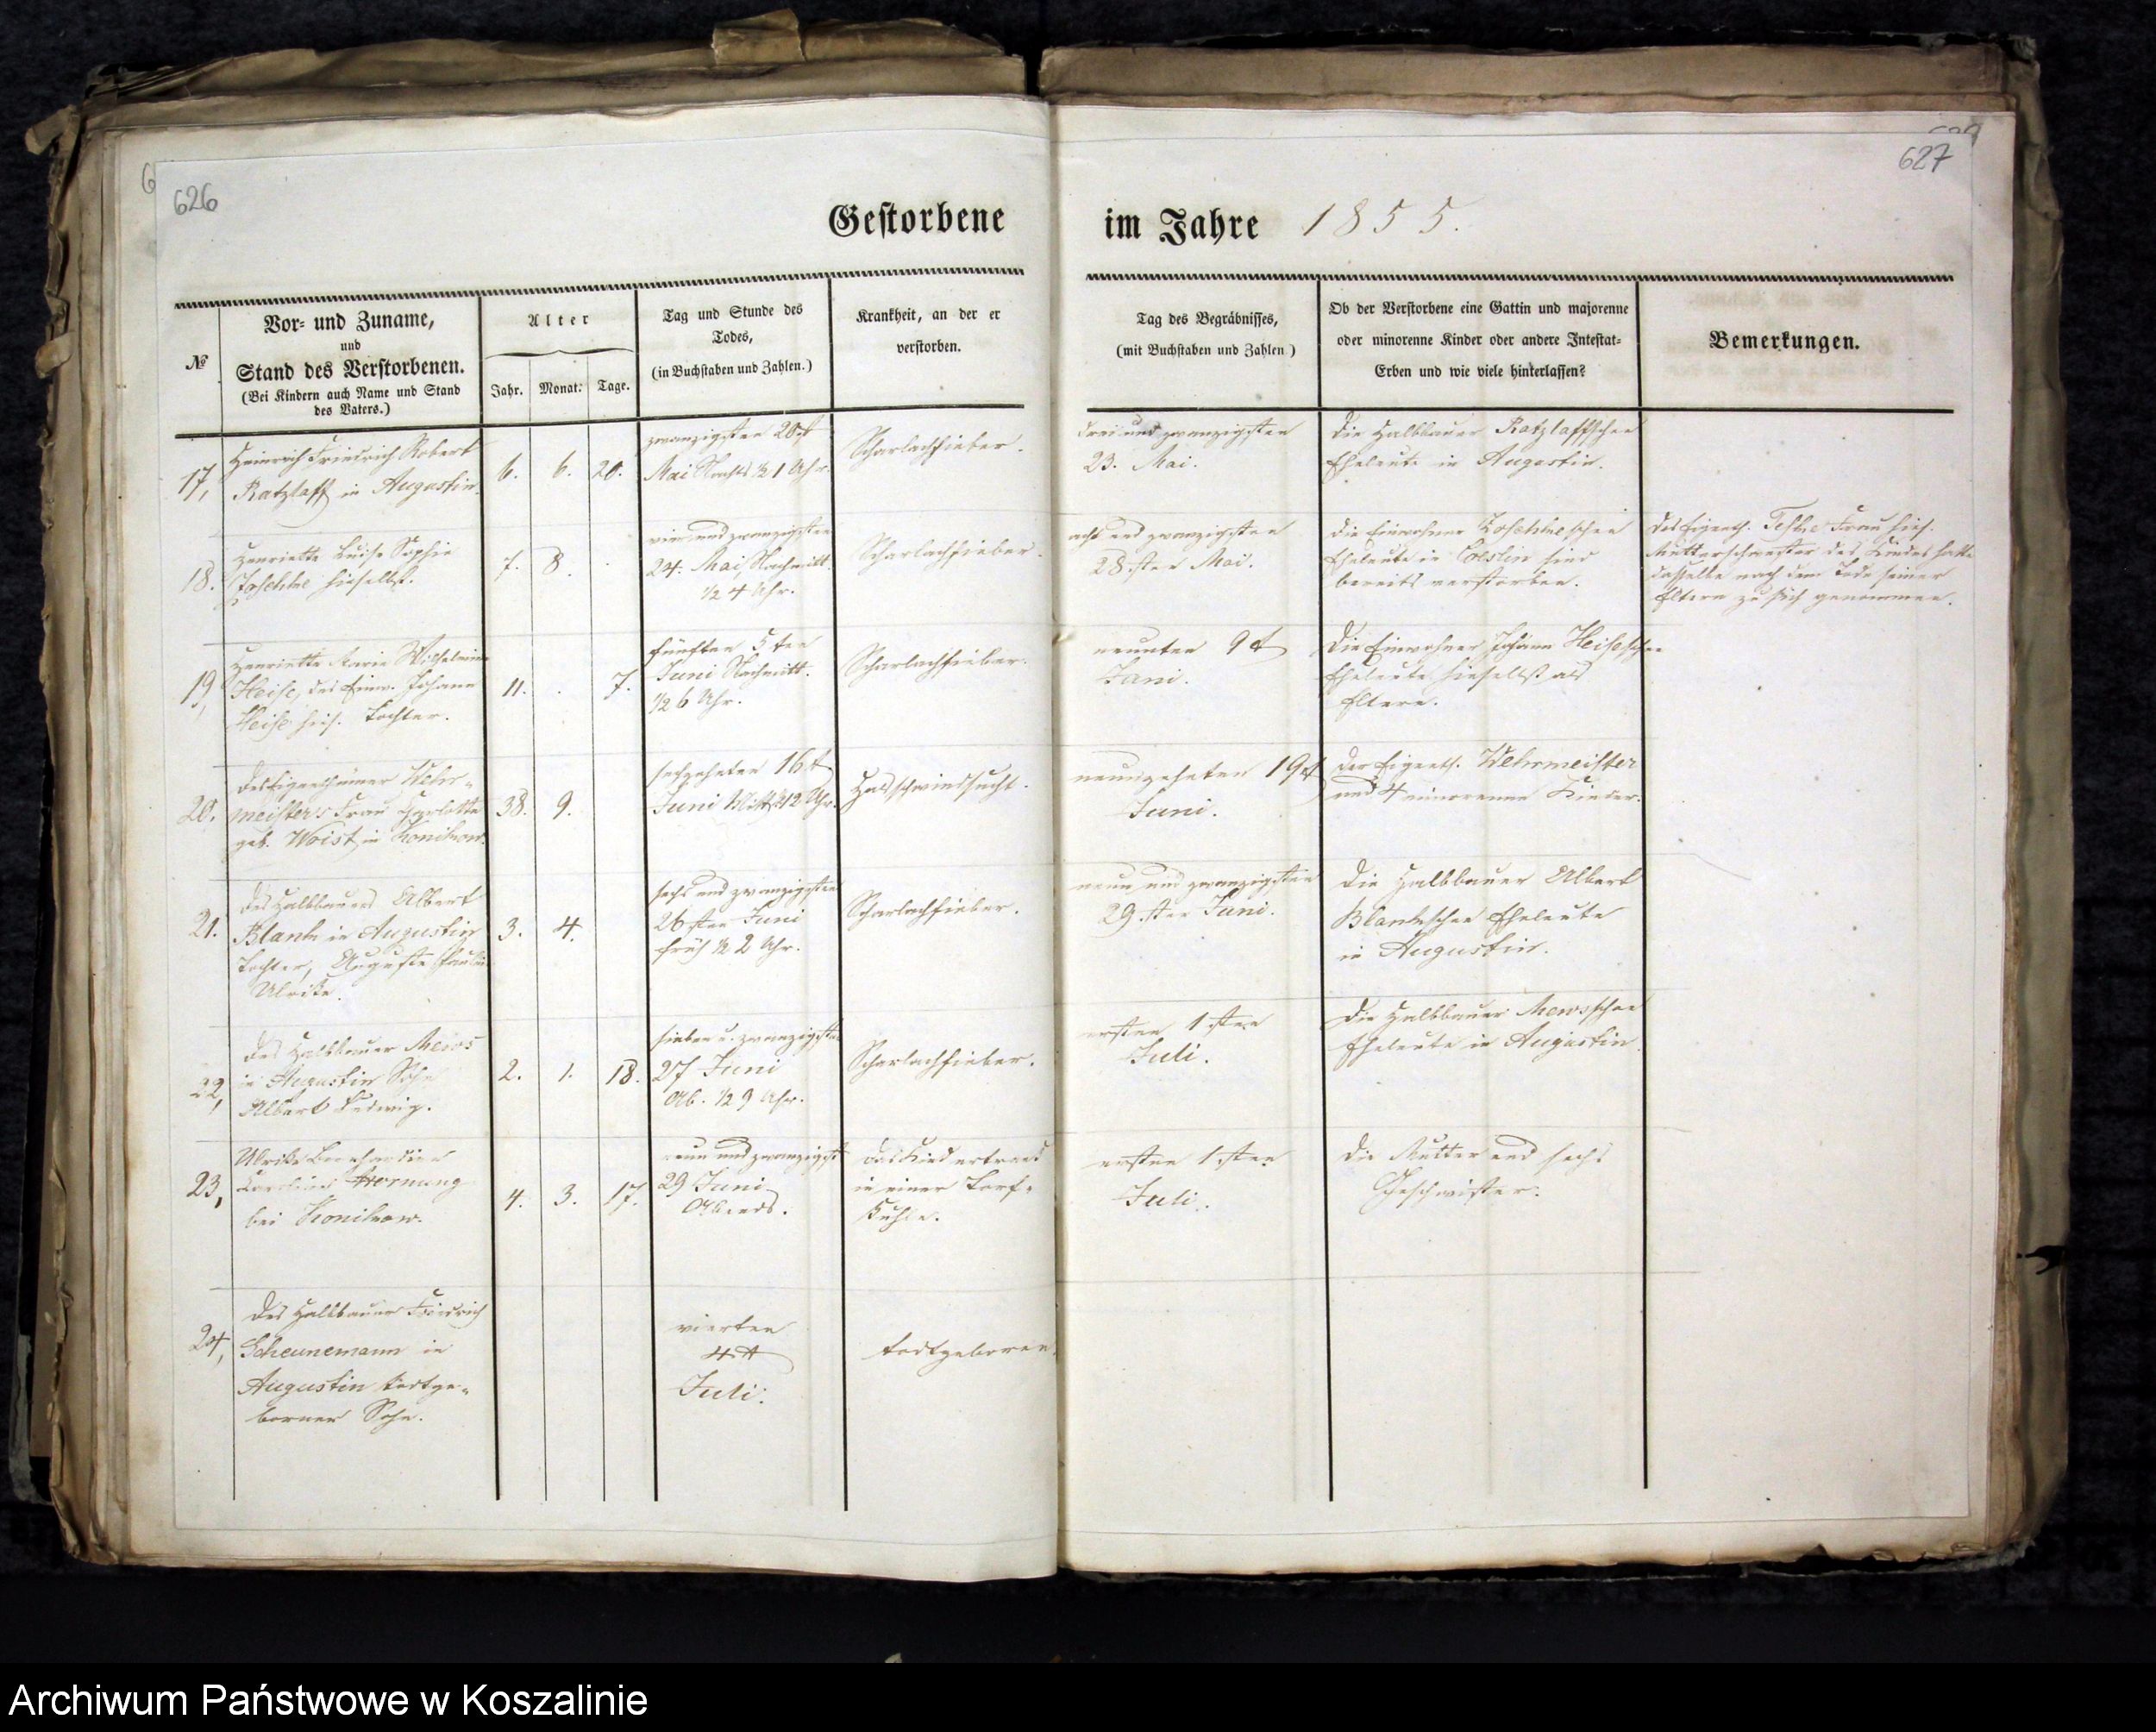 626
627
Gestorbene im Jahre 1855.
№
Vor- und Zuname,
und
Stand des Verstorbenen.
(Bei Kindern auch Name und Stand
des Vaters.)
Alter
Jahr. Monat. Tage.
Tag und Stunde des
Todes,
(in Buchstaben und Zahlen.)
Krankheit, an der er
verstorben.
Tag des Begräbnisses,
(mit Buchstaben und Zahlen)
Ob der Verstorbene eine Gattin und majorenne
oder minorenne Kinder oder andere Intestat-
Erben und wie viele hinterlassen?
Bemerkungen.
17,
Heinrich Friedrich Robert
Ratzlaff in Augustin.
6. 6. 20.
zwanzigsten 20t
Mai Nachts ½ 1 Uhr.
Scharlachfieber.
drei und zwanzigsten
23. Mai.
Die Halbbauer Ratzlaffschen
Eheleute in Augustin.
18.
Henriette Luise Sophie
hieselbst.
7. 8.
vier und zwanzigsten
24. Mai, Nachmitt.
½ 4 Uhr.
Scharlachfieber.
acht und zwanzigsten
28sten Mai.
Die Einwohner
Eheleute in Coeslin sind
bereits verstorben.
Des Eigenth. Frau hies.
Mutterschwester des Kindes hatte
dasselbe nach dem Tode seiner
Eltern zu sich genommen.
19,
Henriette Marie Wilhelmine
Heise, des Einw. Johann
Heise hies. Tochter.
11. 7.
fünften 5ten
Juni Nachmitt.
½ 6 Uhr.
Scharlachfieber.
neunten 9t
Juni.
Die Einwohner Johann Heiseschen
Eheleute hieselbst als
Eltern.
20.
Des Eigenthümer Wehr-
meisters Frau Charlotte
geb. Woist in Konikow.
38. 9.
sechzehnten 16t
Juni Mitt. 12 Uhr.
Halsschwindsucht.
neunzehnten 19t
Juni.
Der Eigenth. Wehrmeister
und 4 minorenne Kinder.
21.
Des Halbbauers Albert
Blank in Augustin
Tochter, Auguste Pauline
Ulrike.
3. 4.
sechs und zwanzigsten
26sten Juni
früh ½ 2 Uhr.
Scharlachfieber.
neun und zwanzigsten
29ster Juni.
Die Halbbauer Albert
Blankschen Eheleute
in Augustin.
22,
Des Halbbauer Mews
in Augustin Sohn
Albert Ludwig.
2. 1. 18.
sieben u. zwanzigsten
27 Juni
Ab. ½ 9 Uhr.
Scharlachfieber.
ersten 1sten
Juli.
Die Halbbauer Mewsschen
Eheleute in Augustin.
23,
Ulrike Bernhardine
Caroline Hornung
bei Konikow.
4. 3. 17.
neun und zwanzigst.
29 Juni
Abends.
Das Kind ertrank
in einer Torf-
kuhle.
ersten 1sten
Juli.
Die Mutter und sechs
Geschwister.
24,
Des Halbbauer Friedrich
Scheunemann in
Augustin todtge-
borner Sohn.
vierten
4t
Juli.
todtgeboren.
Archiwum Państwowe w Koszalinie